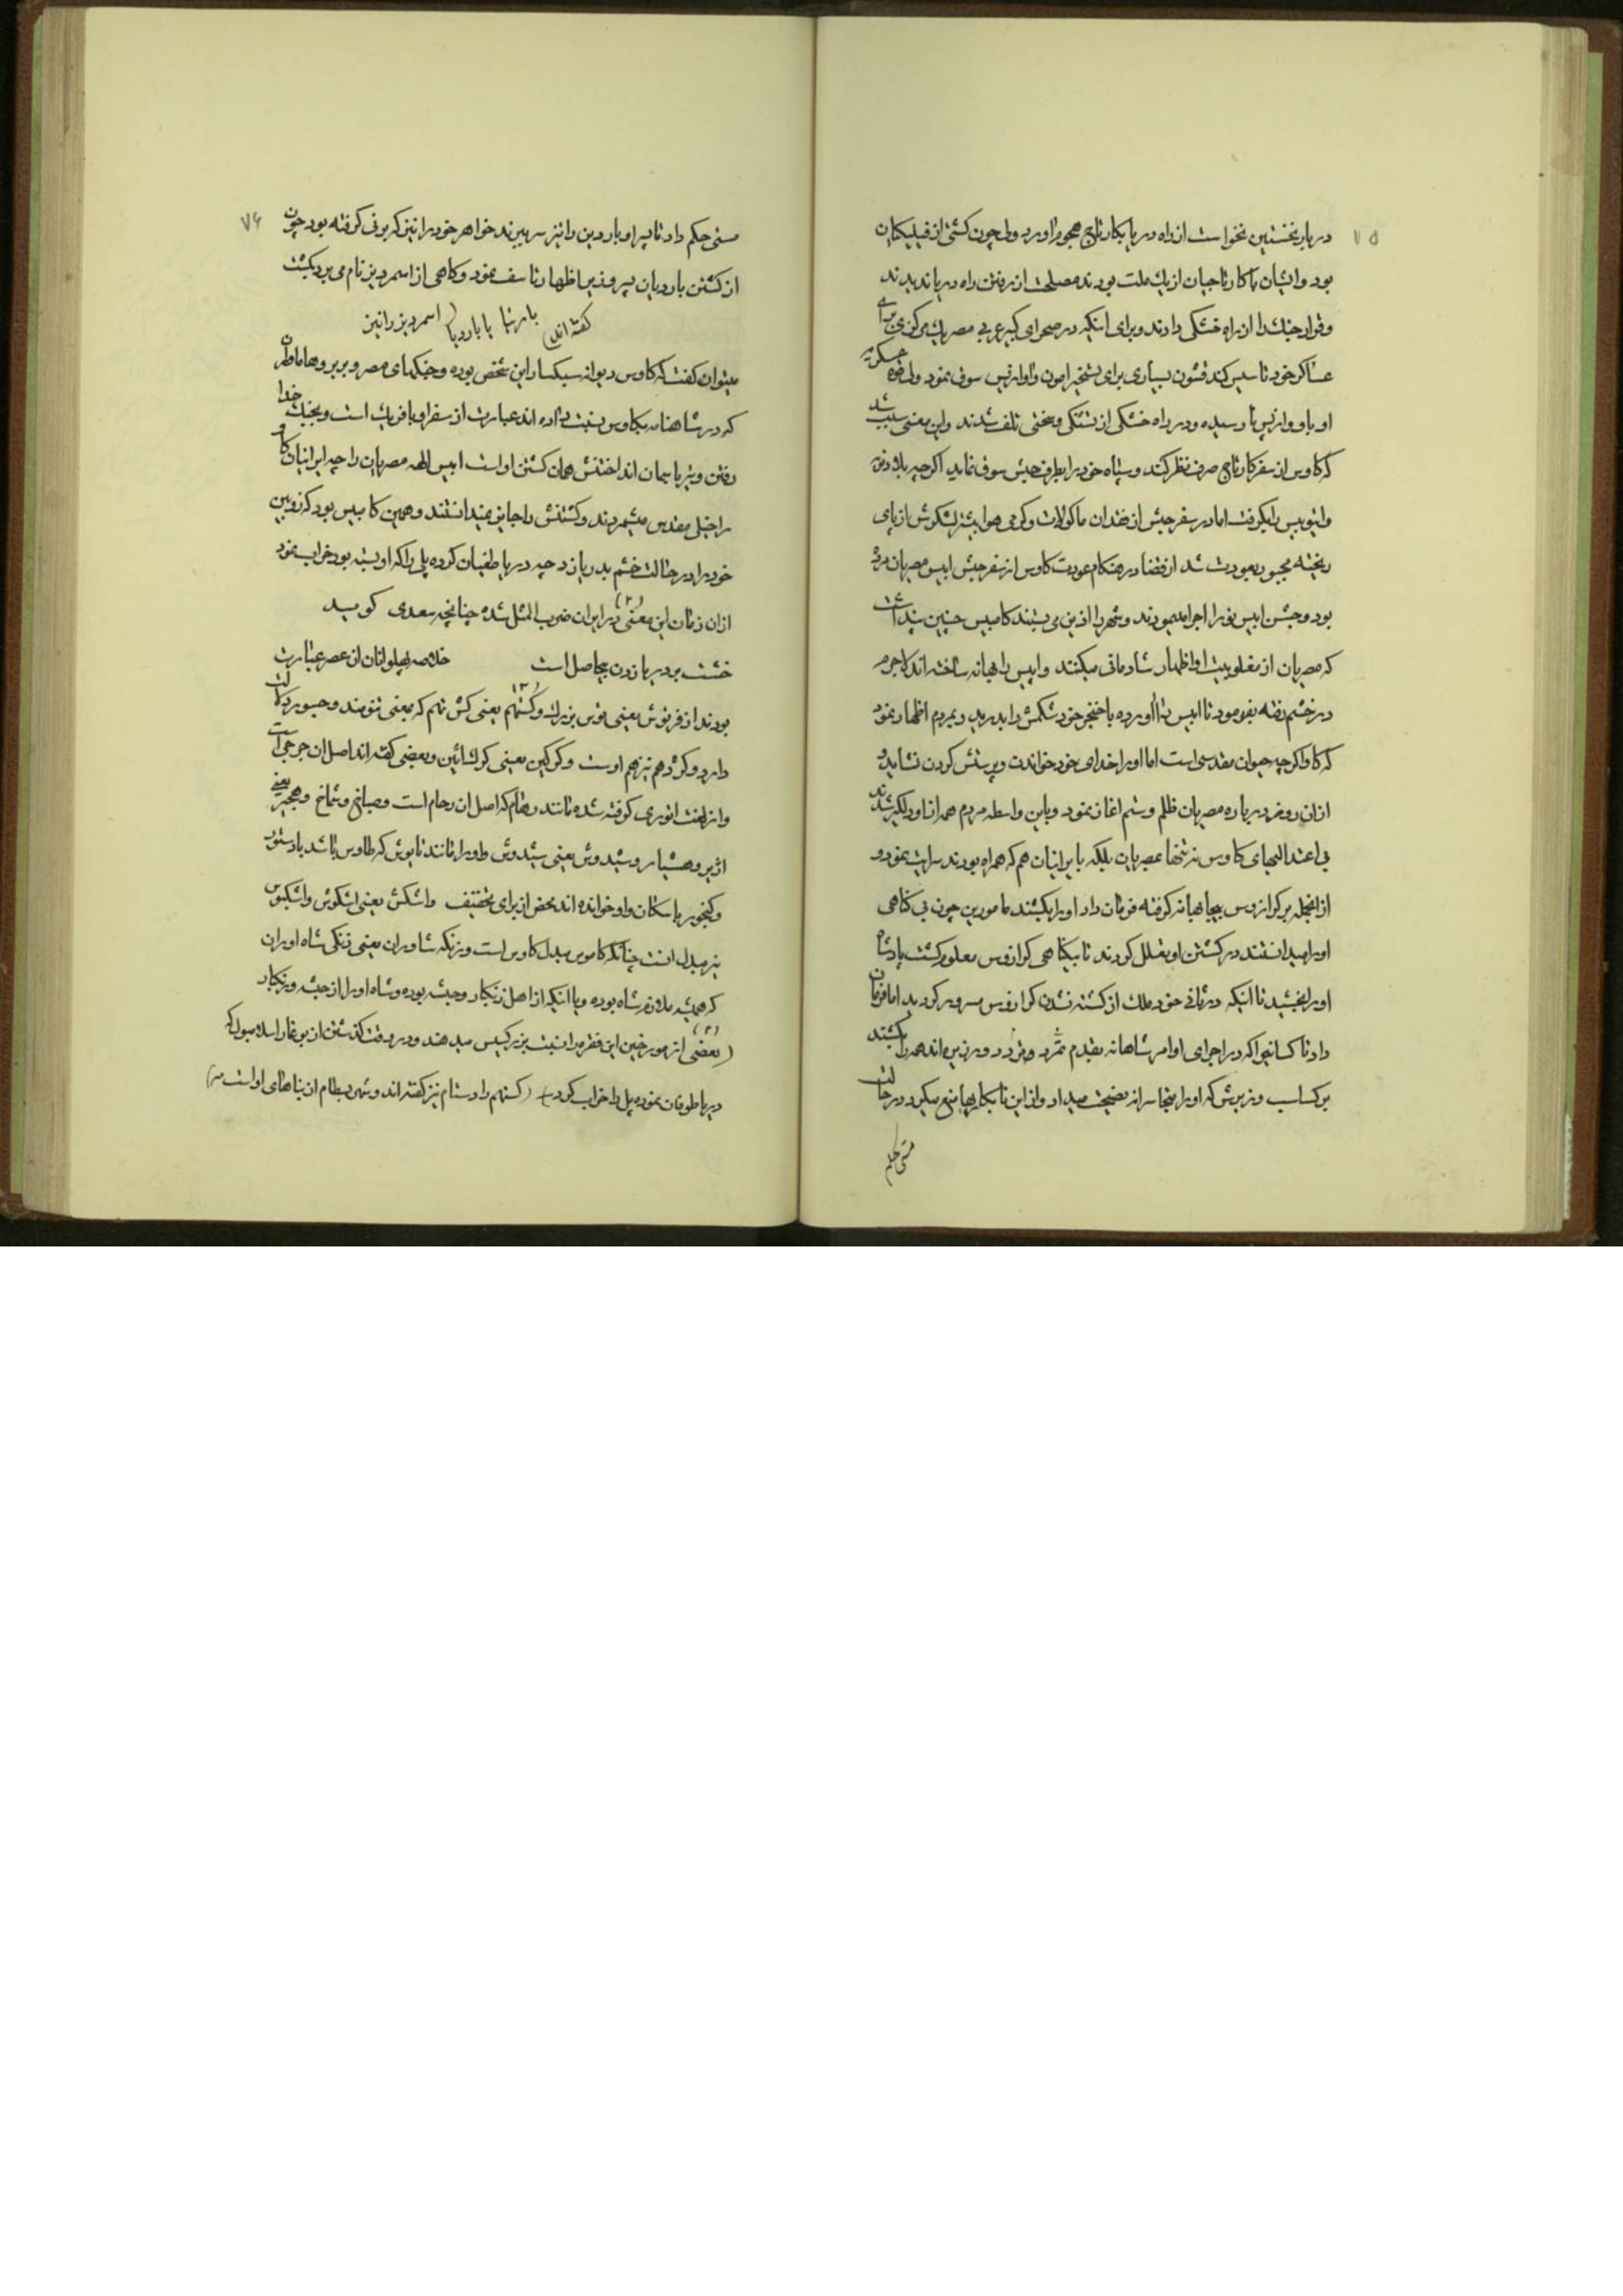 ۷۵
دربار نخستین نخواست از راه دریا بکارتاج هجوم اورد ولی چون کشتی از فینیکیان
بود و ایشان با کارتاجیان از یک ملت بودند مصلحت از رفتن راه دریا ندیدند
و قرار جنک را از راه خشکی دادند و برای اینکه در صحرای کبیر غربی مصر یک مرکزی برای
عساکر خود تاسیس کند قشون بسیاری برای تسخیر امون و اوازیس سوق نمود ولی قوه عسکریه
او باوازیس نارسیده و در راه خشکی از تشنکی و سختی تلف شدند و این معنی سبب شد
که کاوس از سفر کارتاج صرف نظر کند و سپاه خود را بطرف حبش سوق نماید اکرچه بلاد نوبه
و اتیوپیس را بکرفت اما در سفر حبش از فقدان ماکولات و کرمی هوا بیشتر لشکرش از پای
ریخته مجبور بعودت شد از قضا در هنکام عودت کاوس از سفر حبش اپیس مصریان مرده
بود و جشن اپیس نو را اجرا مینمودند و شهر را اذین می بستند کامبیس چنین پنداشت
که مصریان از مغلوبیت او اظهار شادمانی میکنند و اپیس را بهانه ساخته اند لاجرم
در خشم رفته بفرمود تا اپیس را اورده با خنجر خود شکمش را بدرید و بمردم اظهار نمود
که کاو اکرچه حیوان مقدسی است اما او را خدای خود خواندن و پرستش کردن نشاید و
ازان روز درباره مصریان ظلم و ستم اغاز نمود و باین واسطه مردم همه از او دلکیر شدند
بی اعتدالیهای کاوس نه تنها بمصریان بلکه بایرانیان هم که همراه بودند سرایت نمود و
ازانجمله بر کرازوس بیجا بهانه کرفته فرمان داد او را بکشند مامورین چون بی کناهی
او را میدانستند در کشتن او تعلل کردند تا بیکناهی کرازوس معلوم کشت پادشاه
او را بخشید تا انکه در ثانی خود ملک از کشته نشدن کرازوس مسرور کردید اما فرمان
داد تا کسانیرا که در اجرای اوامر شاهانه بقدم تمرد و تردد ورزیده اند همه را بکشند
برکساسب وزیرش که او را بتجاسرانه نصیحت میداد و از این نابکاریها منع میکرد در حالت
مستی حکم
۷۶
مستی حکم داد تا پسر او باردین را نیز سر ببرند خواهر خود را نیز که بزنی کرفته بود چون
از کشتن باردیان پیروز پر اظهار تاسف نمود و کاهی از اسمردیز نام می برد بکشت
(اسمردیز را نیز بارتیا یا باردیا کفته اند)
میتوان کفت که کاوس دیوانه سبکسار این شخص بوده و جنکهای مصر و بربر و هاماوران
که در شاهنامه بکاوس نسبت داده اند عبارت از سفر او بافریک است و بجنک خدا
رفتن و تیر باسمان انداختنش همان کشتن او است اپیس اله مصریان را چه ایرانیان کاو
را خیلی مقدس میشمردند و کشتنش را جایز نمیدانستند و همین کامبیس بود که زوبین
خود را در حالت خشم بدریا زد چه دریا طغیان کرده پلی را که او بسته بود خراب نمود
ازان زمان این معنی (۲) در ایران ضرب المثل شده چنانچه سعدی کوید
خشت بر دریا زدن بیحاصل است خلاصه پهلوانان ان عصر عبارت
بودند از فریوش یعنی یوس بزرک و کستهم (۳) یعنی کش تهم که بمعنی تنومند و جسور دلالت
دارد و کژدهم نیز هم اوست و کرکین یعنی کرک ائین و بعضی کفته اند اصل ان جرجی است
و از لغت اثوری کرفته شده مانند رهام که اصل ان رحام است و صباخ و شماخ و هجیر یعنی
اژیر و هشیار و شیدوش یعنی سپیدوش و او را مانند تابوش که طاوس باشد با دستور
و کنجور باسکان واو خوانده اند محض از برای تخفیف و اشکش یعنی اشکوش و اشکبوس
نیز مبدل انست چنانکه کاموس مبدل کاوس است و زنکه شاوران یعنی زنکی شاه اوران
که همیشه ملازم شاه بوده و یا انکه از اهل زنکبار و حبشه بوده و شاه او را از حبشه و زنکبار
(۲) (بعضی از مورخین این فقره را نسبت بزرکسیس میدهند و در وقت کذشتن از بوغاز اسلامبول که
دریا طوفان نموده پل را خراب کرد) (کستهم را وستام نیز کفته اند و شهر بسطام از بناهای او است ۳)